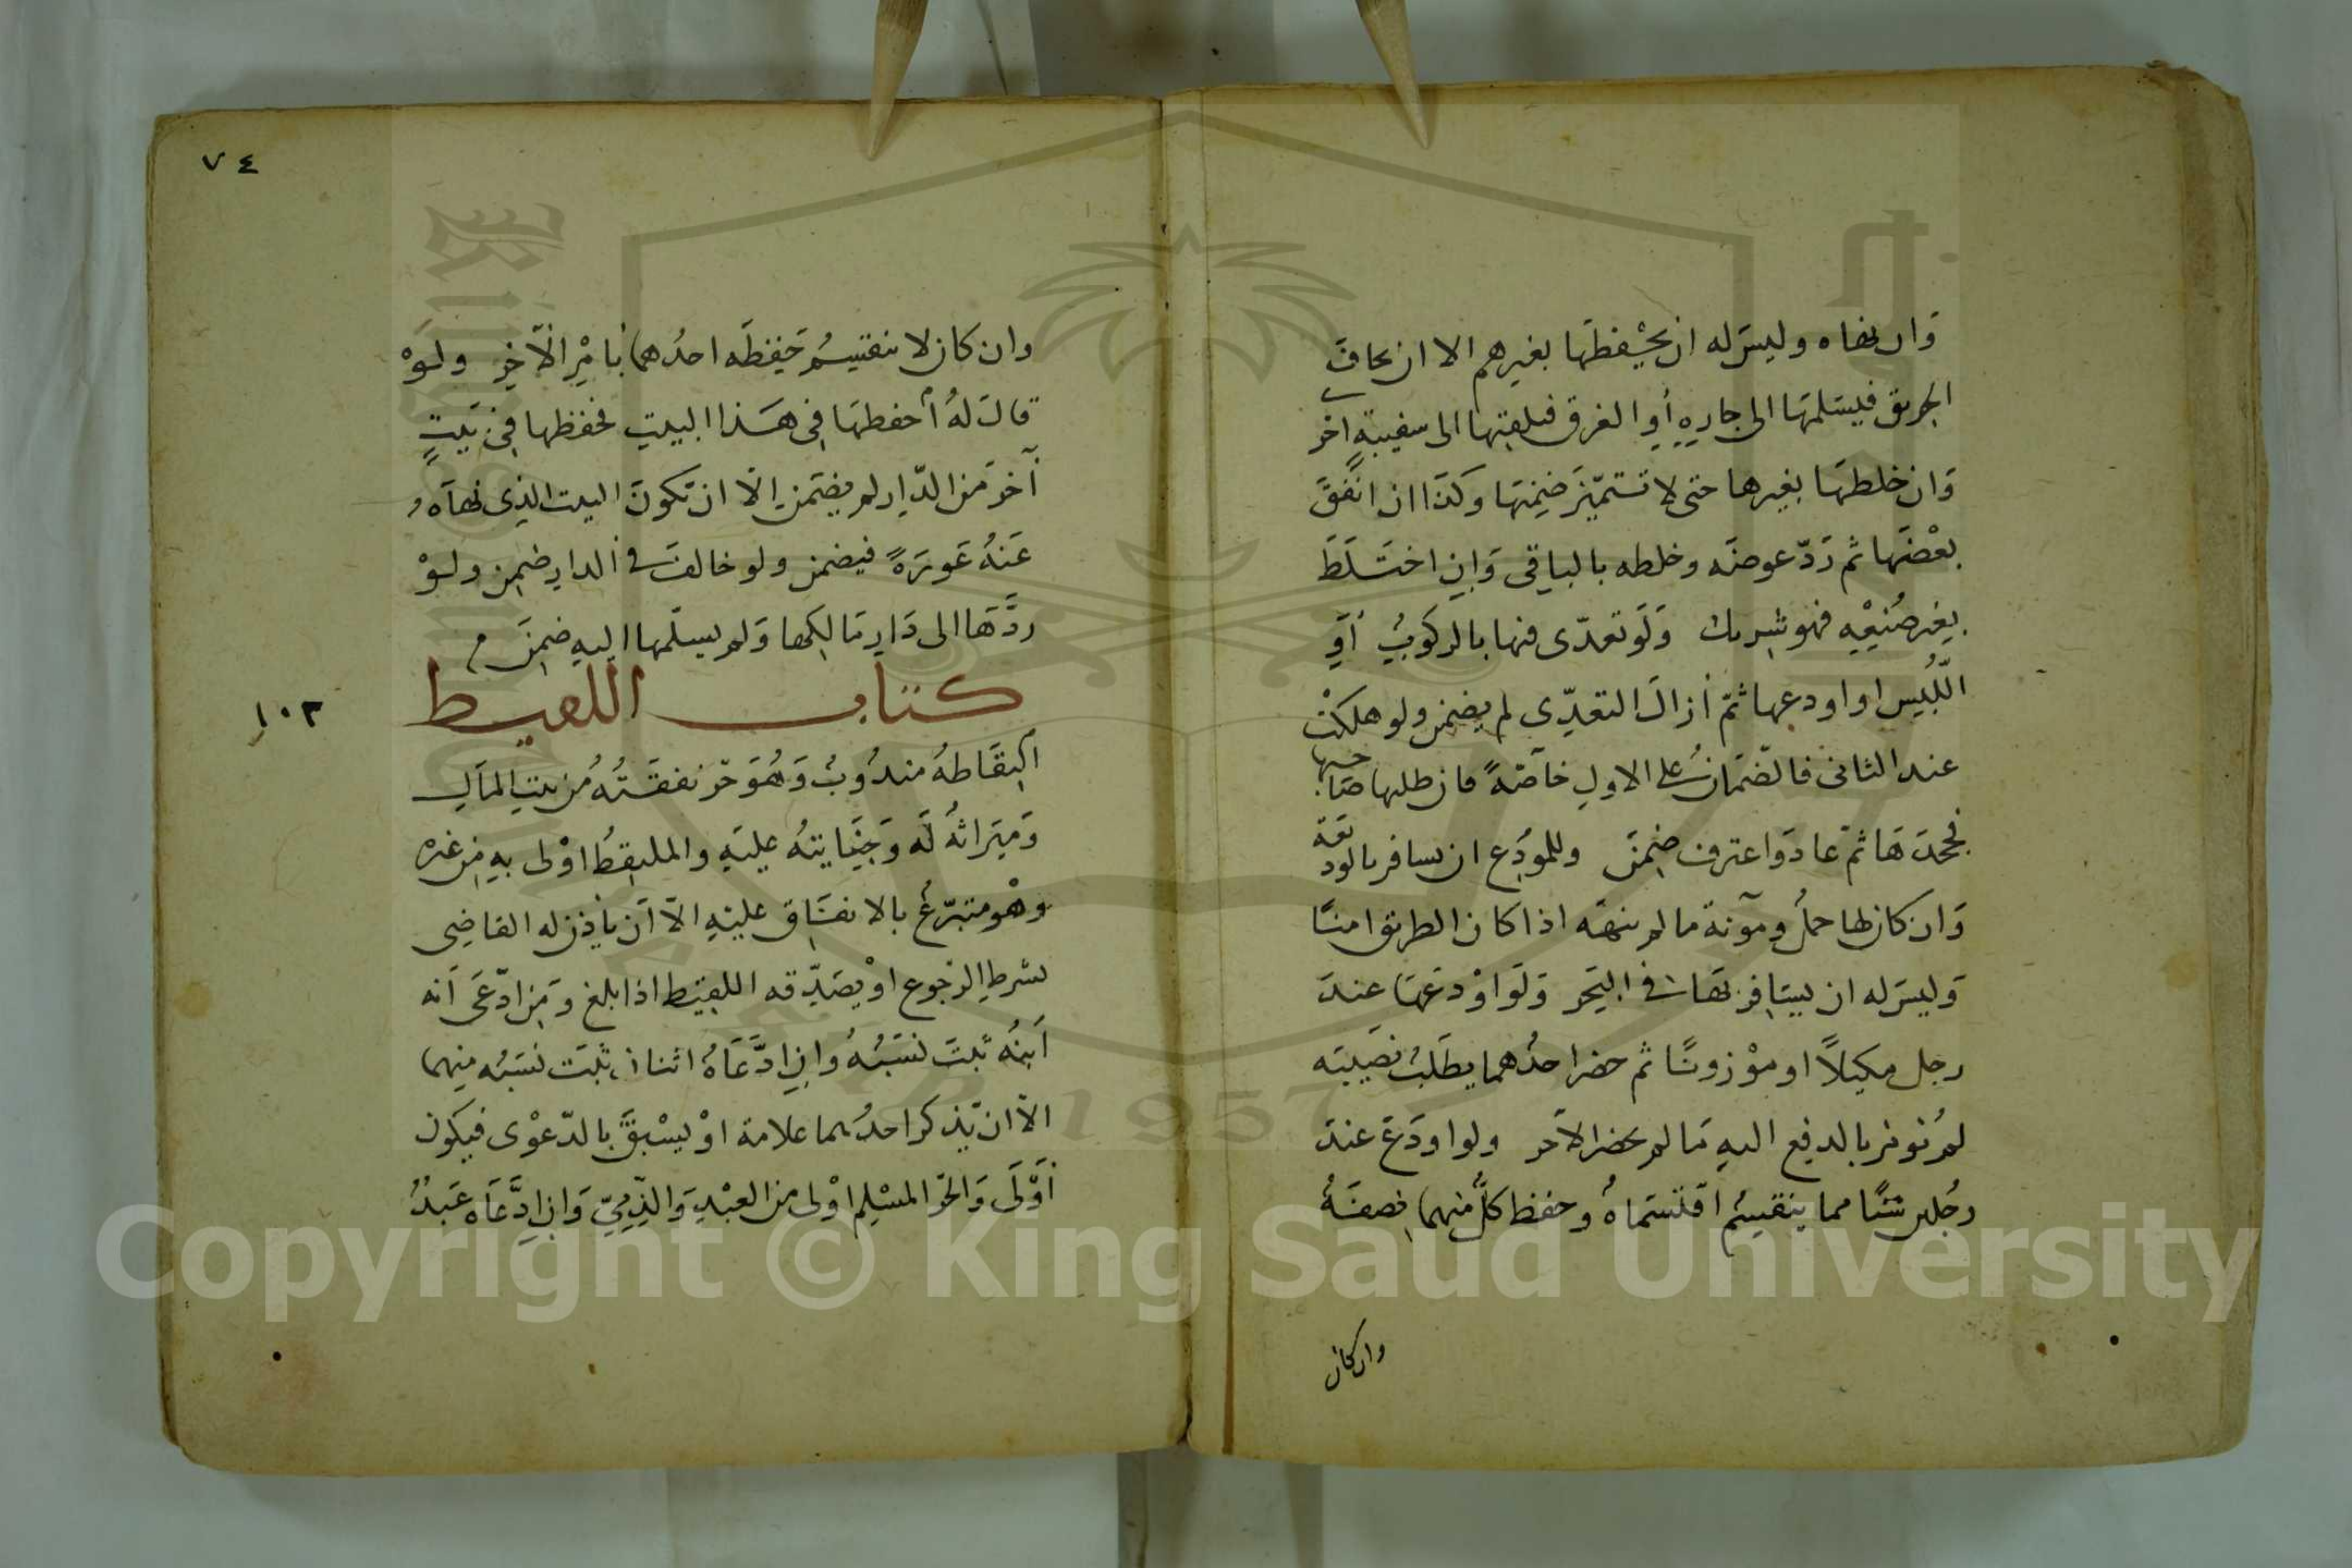 وَان نهاه وليسَ له ان يحْفظهَا بغيرهم الا ان يخافَ
الحريق فيسَلمهَا الى جارهِ أوِ الغرق فيلقيها الى سفينةٍ اخر
وَان خلطهَا بغيرها حتى لا تتميّز ضمِنهَا وكذَا ان انفقَ
بعْضَهَا ثم رَدّ عوضَه وخلطه بالباقى وَاِنِ اختَلَطَ
بغير صُنعِه فهو شريك وَلَو تعدّى فيها بالركوبِ أوِ
اللّبسِ او اودعها ثمّ أزالَ التعدِّى لم يضمن ولو هلكتْ
عند الثانى فالضّمان على الاولِ خاصّةً فان طلبها صَاحبها
فجحدَهَا ثمّ عادَ واعترفَ ضمِنَ وللمودَع ان يسافر بالوديعَة
وَان كان لها حملٌ ومؤنة ما لم ينهَه اذا كان الطريق امنًا
وَليسَ له ان يسَافِر بهَا فى البَحر وَلَو اوْدعَهَا عندَ
رجل مكيلاً او موْزونًا ثم حضر احدُهما يطلَبُ نصيبَه
لم يُؤمر بالدفع اليهِ مَا لم يحضر الآخر ولو اودَعَ عندَ
رجُلين شئًا مما ينقسِمُ اقتسَماهُ وحفظ كلٌّ منهما نصفَهُ
وان كان
٧٤
وان كان لا ينقسِمُ حَفِظَه احدُهما بامْرِ الآخِرِ ولَوْ
قالَ لهُ احفظهَا فى هَذا البيتِ فحفظها فى بَيتٍ
آخرَ مَن الدّارِ لم يضمَن الّا ان تكونَ البيت الذى نهاهُ
عَنهُ عَورَةً فيضمن ولو خالفَ فى الدارِ ضمِن ولوْ
ردَّهَا الى دَارِ مَالِكها وَلم يسلّمها اليهِ ضمِنَ م
كتاب اللقيط
١٠٣
اِلتِقَاطهُ مندُوبٌ وَهُوَ حرّ نفقَتُهُ من بيتِ المَالِ
وَميَراثهُ لَه وَجِنَايتهُ عليَهِ والملتقِطُ اوْلى بهِ من غيره
وهْو متبرّعٌ بالانفَاقِ عليْهِ الاّ اَن يأذن له القاضِى
بشرطِ الرّجوع اوْ يصَدّقه اللقيط اذا بلغ وَمَن ادّعَى اَنه
اَبنُه ثبتَ نسَبُهُ وان ادَّعَاهُ اثنان ثبَت نسَبُه منهما
الاّ ان يّذكر احدُهما علامة اوْ يسْبقَ بالدّعوْى فيكون
أَوْلَى وَالحرّ المسْلِم اوْلى من العبْدِ وَالذِّمِّىّ وَاِنِ ادَّعَاه عَبدٌ